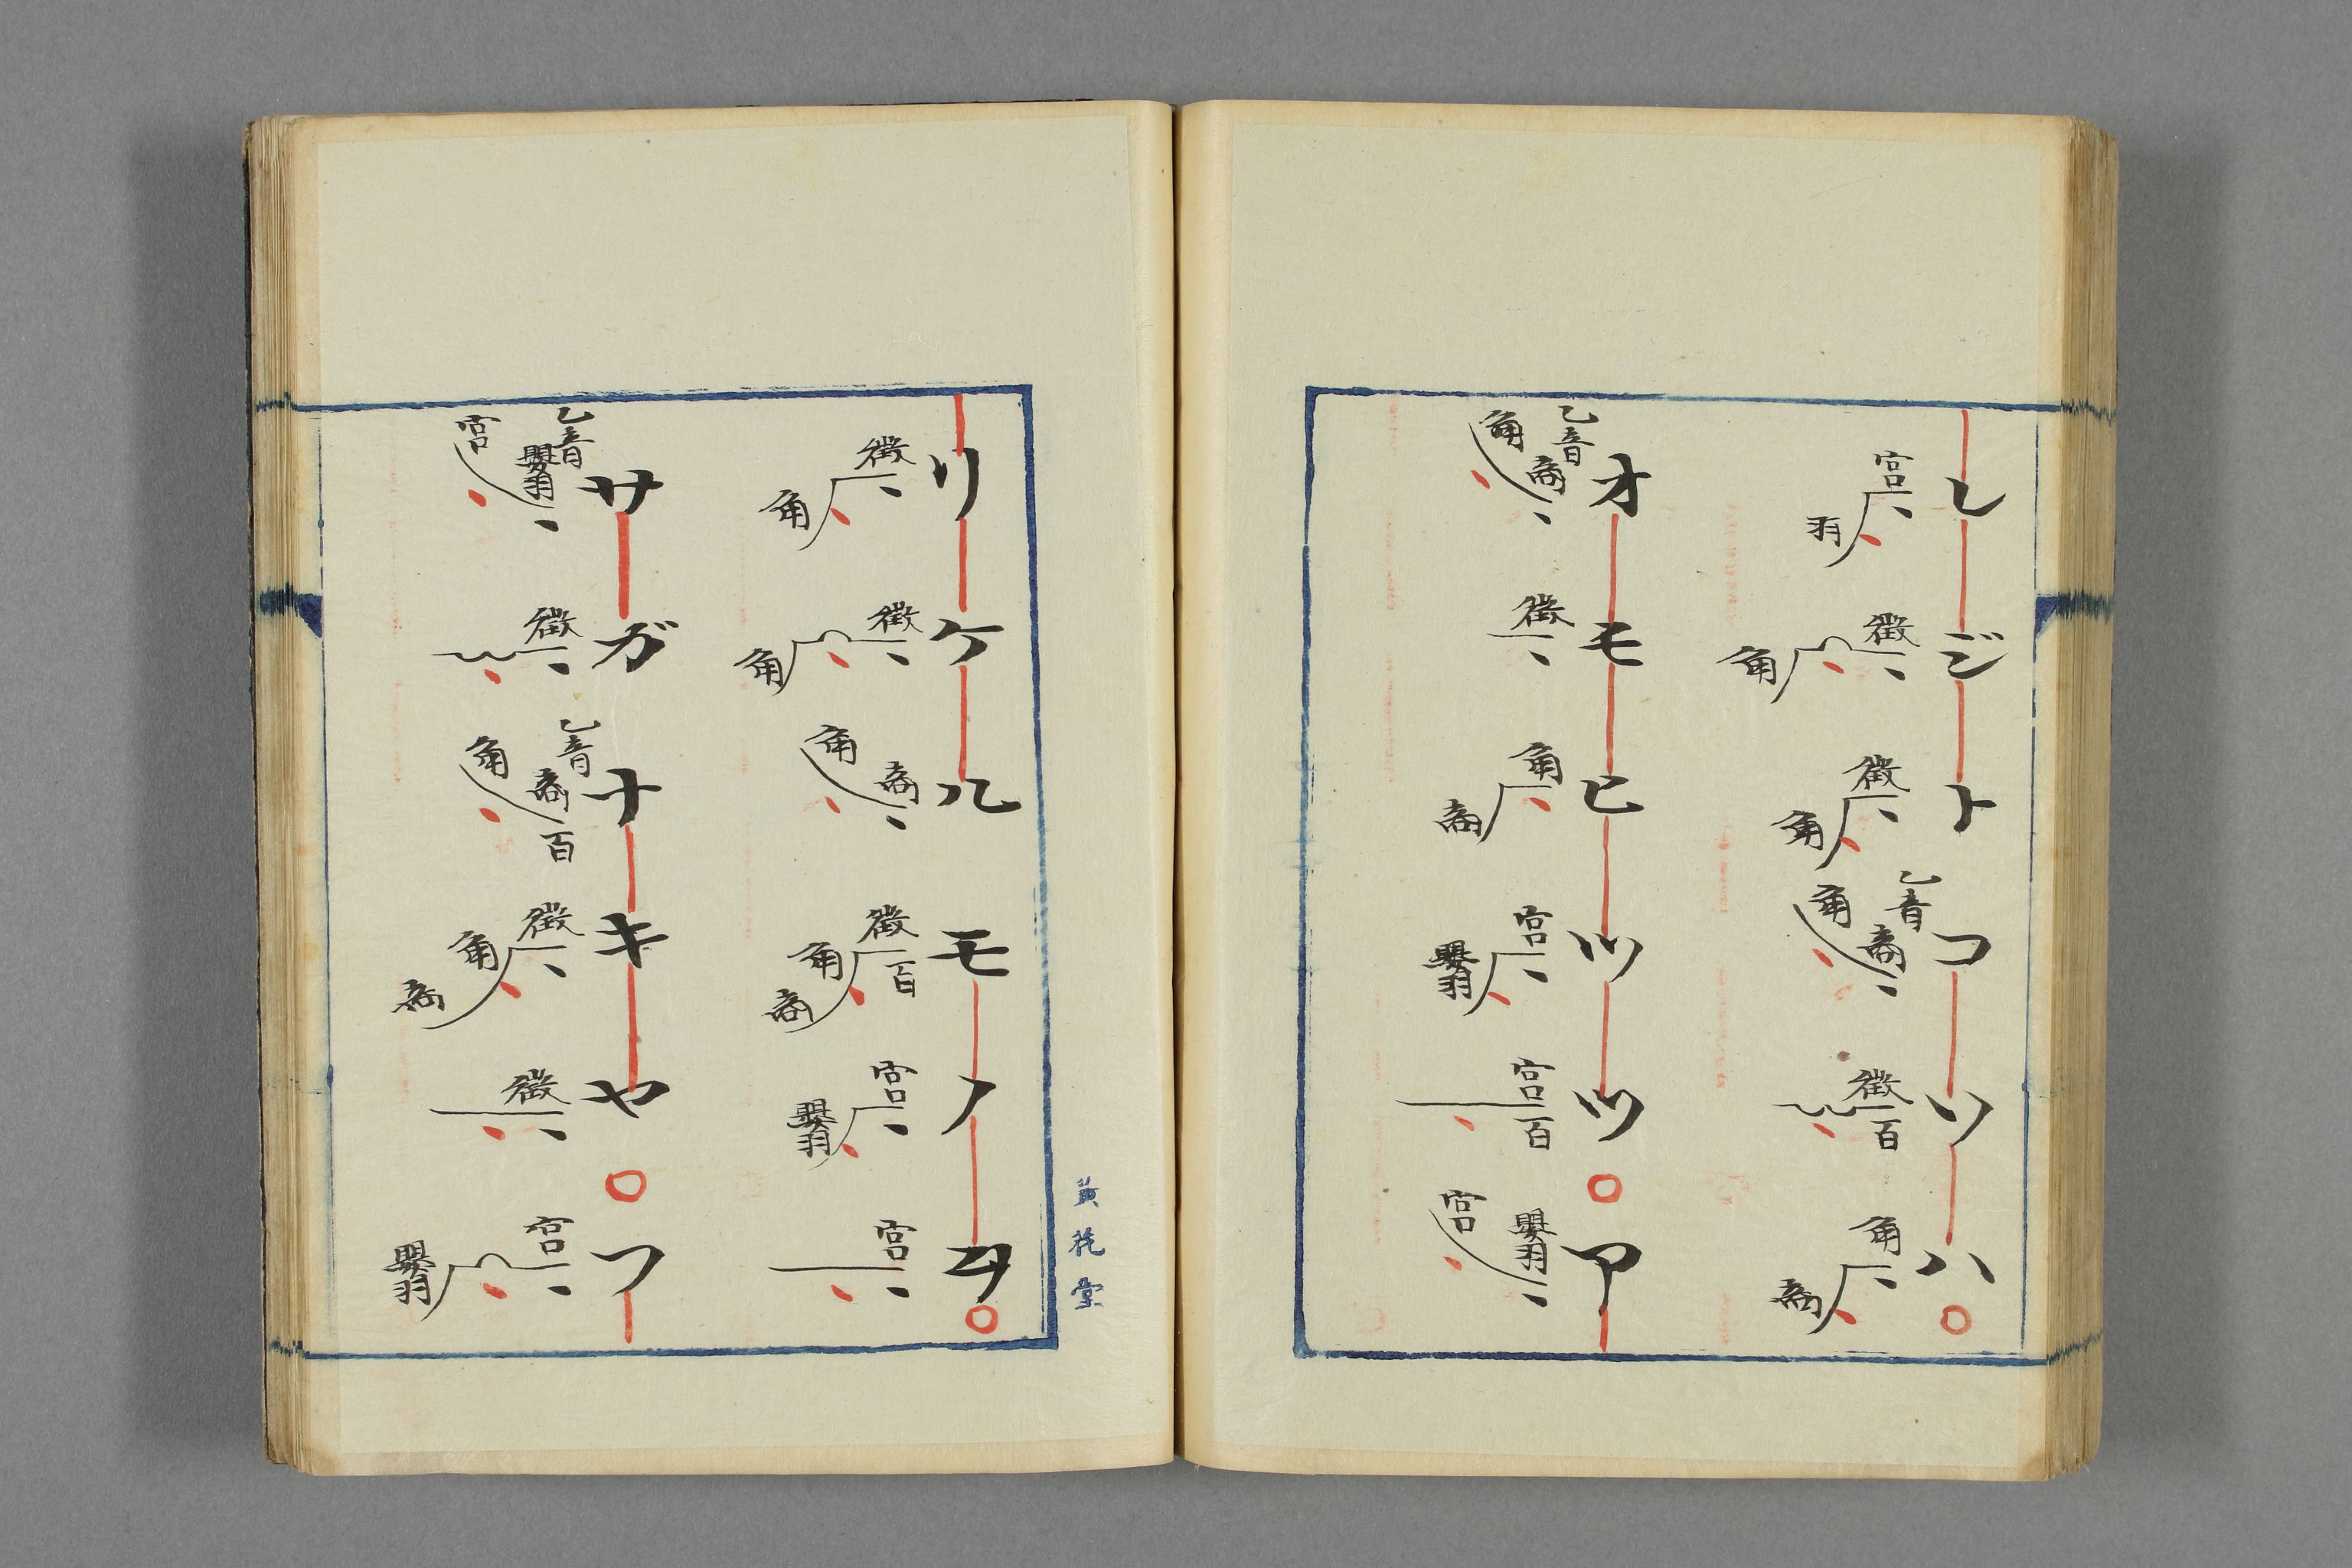 レジトコソハ○
宮 羽 徴 角 徴 角 乙音 商 角 徴 百 角 商
オモヒツツ○ア
乙音 商 角 徴 角 商 宮 嬰羽 宮 百 嬰羽 宮
リケルモノヲ○
徴 角 徴 角 商 角 徴 百 角 商 宮 嬰羽 宮
サガナキヤ○フ
乙音 嬰羽 宮 徴 乙音 商 角 百 徴 角 商 徴 宮 嬰羽